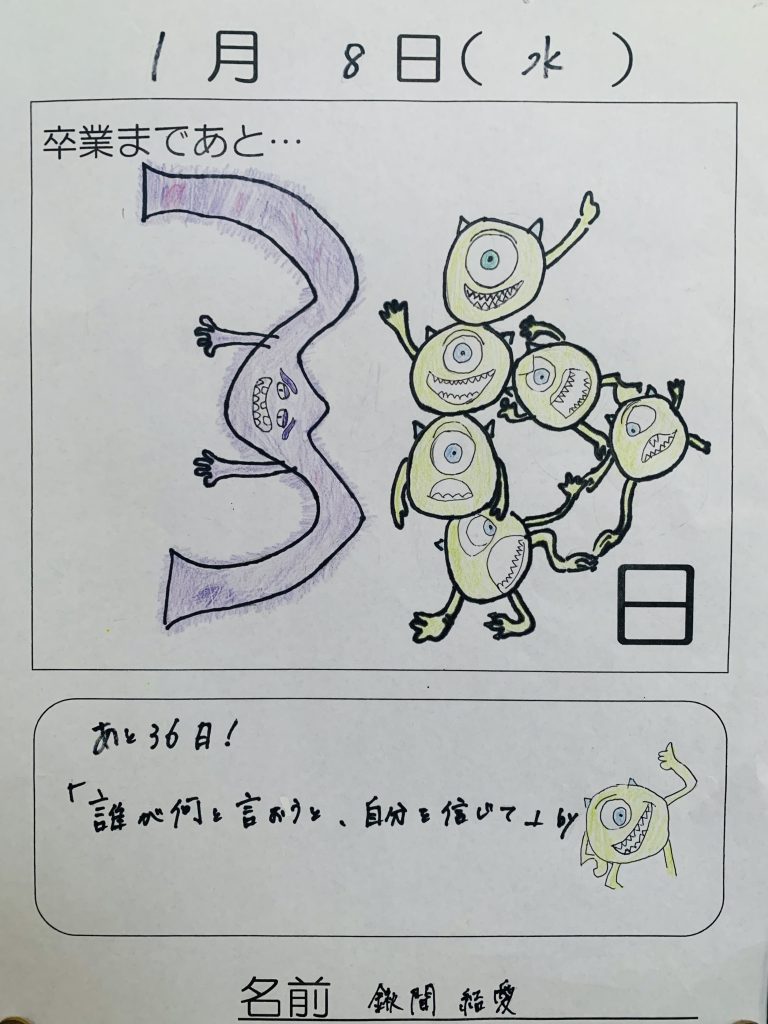 1月 8日(水)
卒業まであと…
36日
あと36日!
「誰が何と言おうと、自分を信じて」by
名前 鍬間 結愛